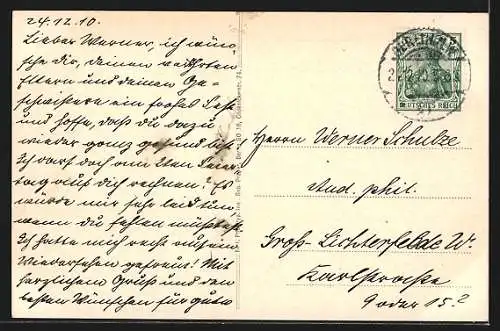 24.12.10.
Lieber Werner, ich wün-
sche dir, deinen verehrten
Eltern und deinen Ge-
schwistern ein frohes Fest
und hoffe, daß du dazu
wieder ganz gesund bist!
Ich darf doch am 2ten Feier-
tag auf dich rechnen? Es
würde mir sehr leid tun,
wenn du fehlen müßtest.
Ich hatte mich recht auf ein
Wiedersehen gefreut! Mit
herzlichem Gruß und den
besten Wünschen für gute
BERLIN
DEUTSCHES REICH
Herrn Werner Schulze
Stud. phil.
Groß-Lichterfelde W.
Karlstrasse
9 oder 15?